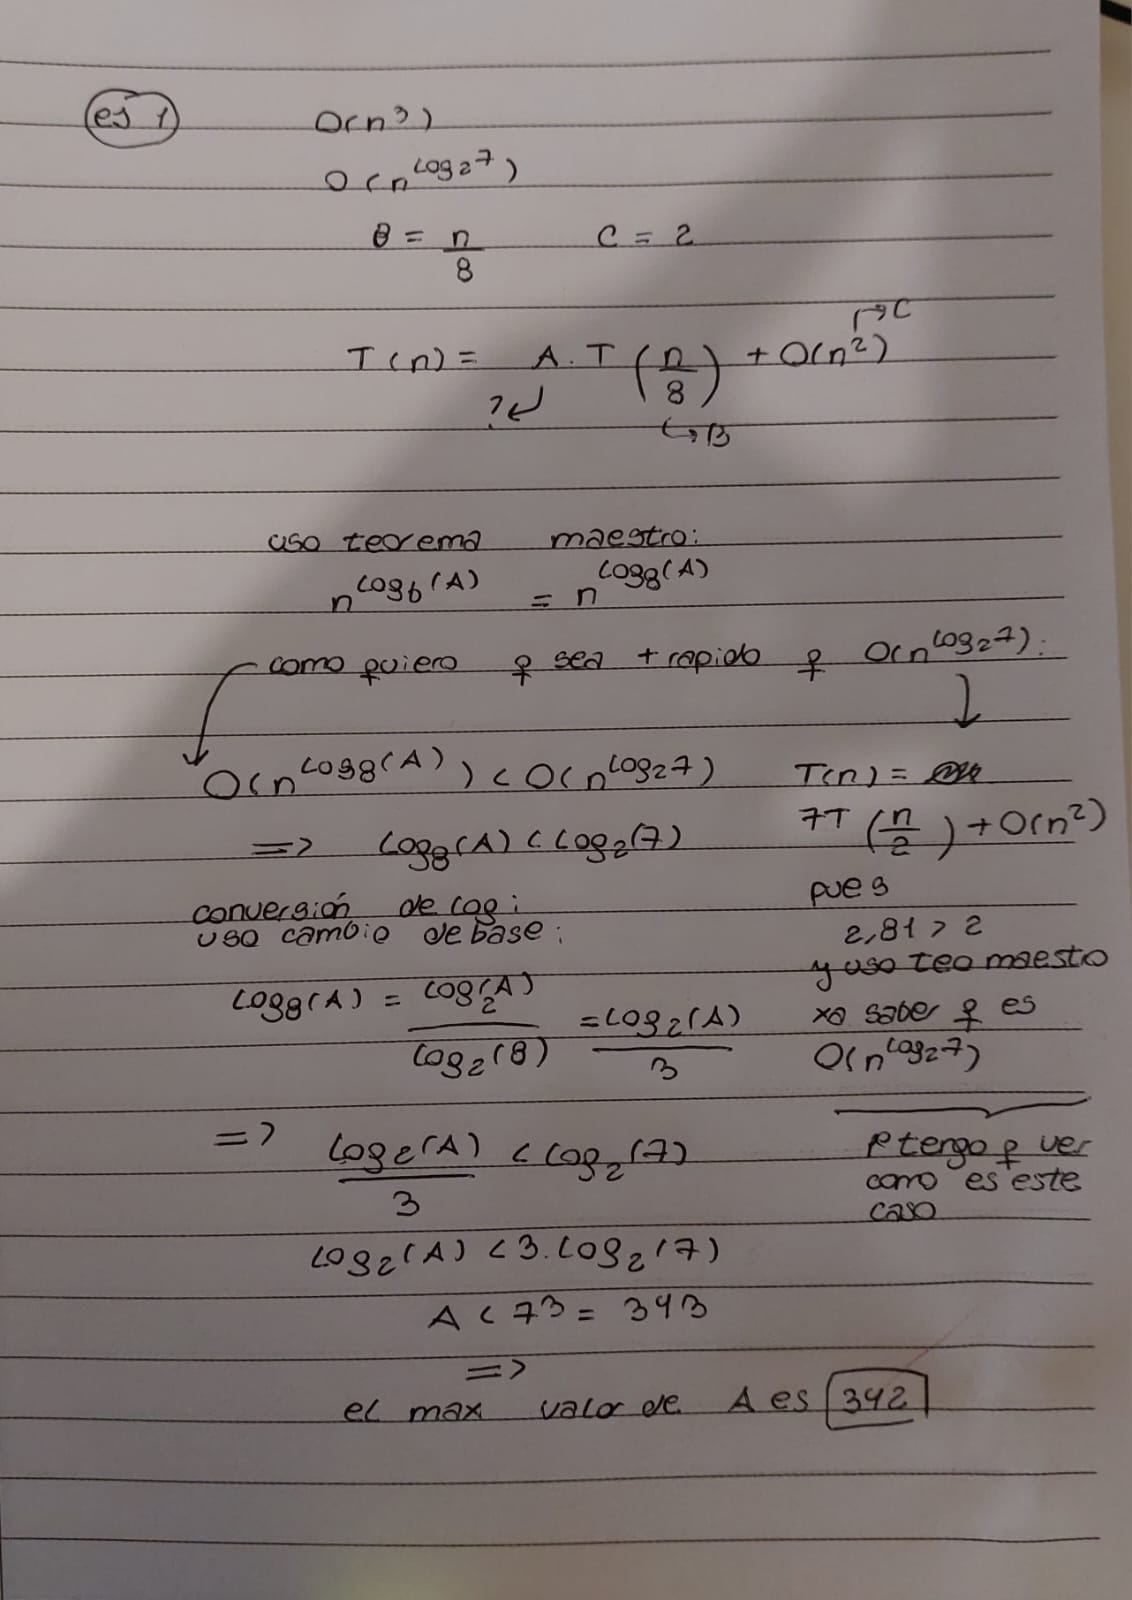 ej 1
O(n³)
O(n^log₂7)
B = n/8    C = 2
T(n) = A.T(n/8) + O(n²)
→C
?
→B
uso teorema maestro:
n^logb(A) = n^log8(A)
como quiero q sea + rapido q O(n^log₂7):
O(n^log8(A)) < O(n^log₂7)
=> log8(A) < log₂(7)
conversión de log:
uso cambio de base:
log8(A) = log₂(A)/log₂(8) = log₂(A)/3
=> log₂(A)/3 < log₂(7)
log₂(A) < 3.log₂(7)
A < 7³ = 343
=>
el max valor de A es 342
T(n) =
7T(n/2) + O(n²)
pues
2,81 > 2
y uso teo maestro
xa saber q es
O(n^log₂7)
tengo q ver
como es este
caso